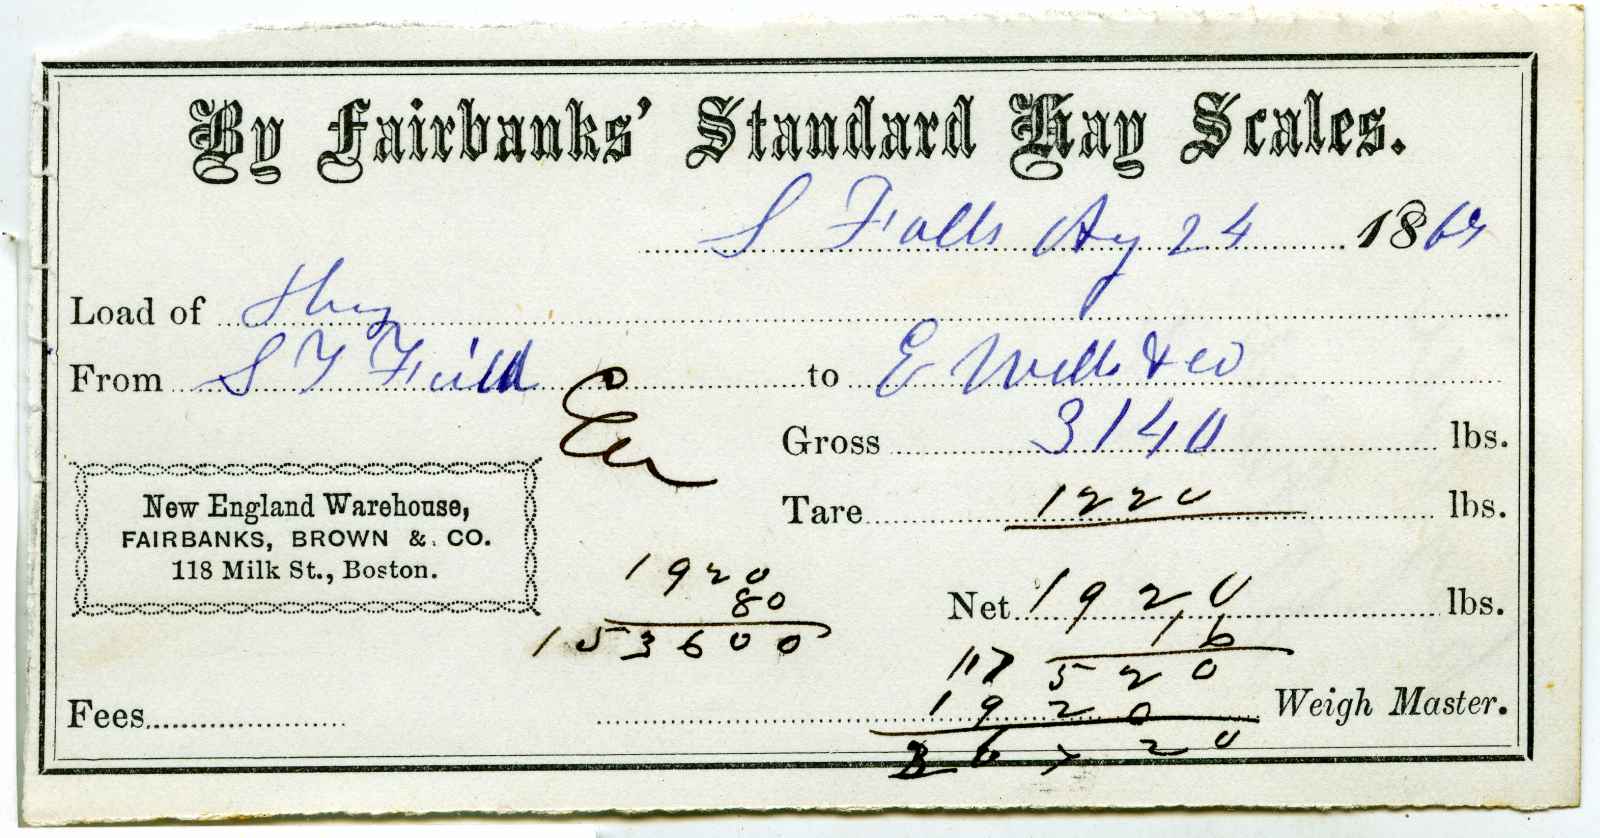 By Fairbanks' Standard Hay Scales.
S Falls Aug 24 186
Load of Hay
From S F Field to E Wells & co
Gross 3140 lbs.
Tare 1220 lbs.
New England Warehouse,
FAIRBANKS, BROWN & CO.
118 Milk St., Boston.
1920
80
153600
Net 1920 lbs.
16
11520
1920
30720
Fees
Weigh Master.